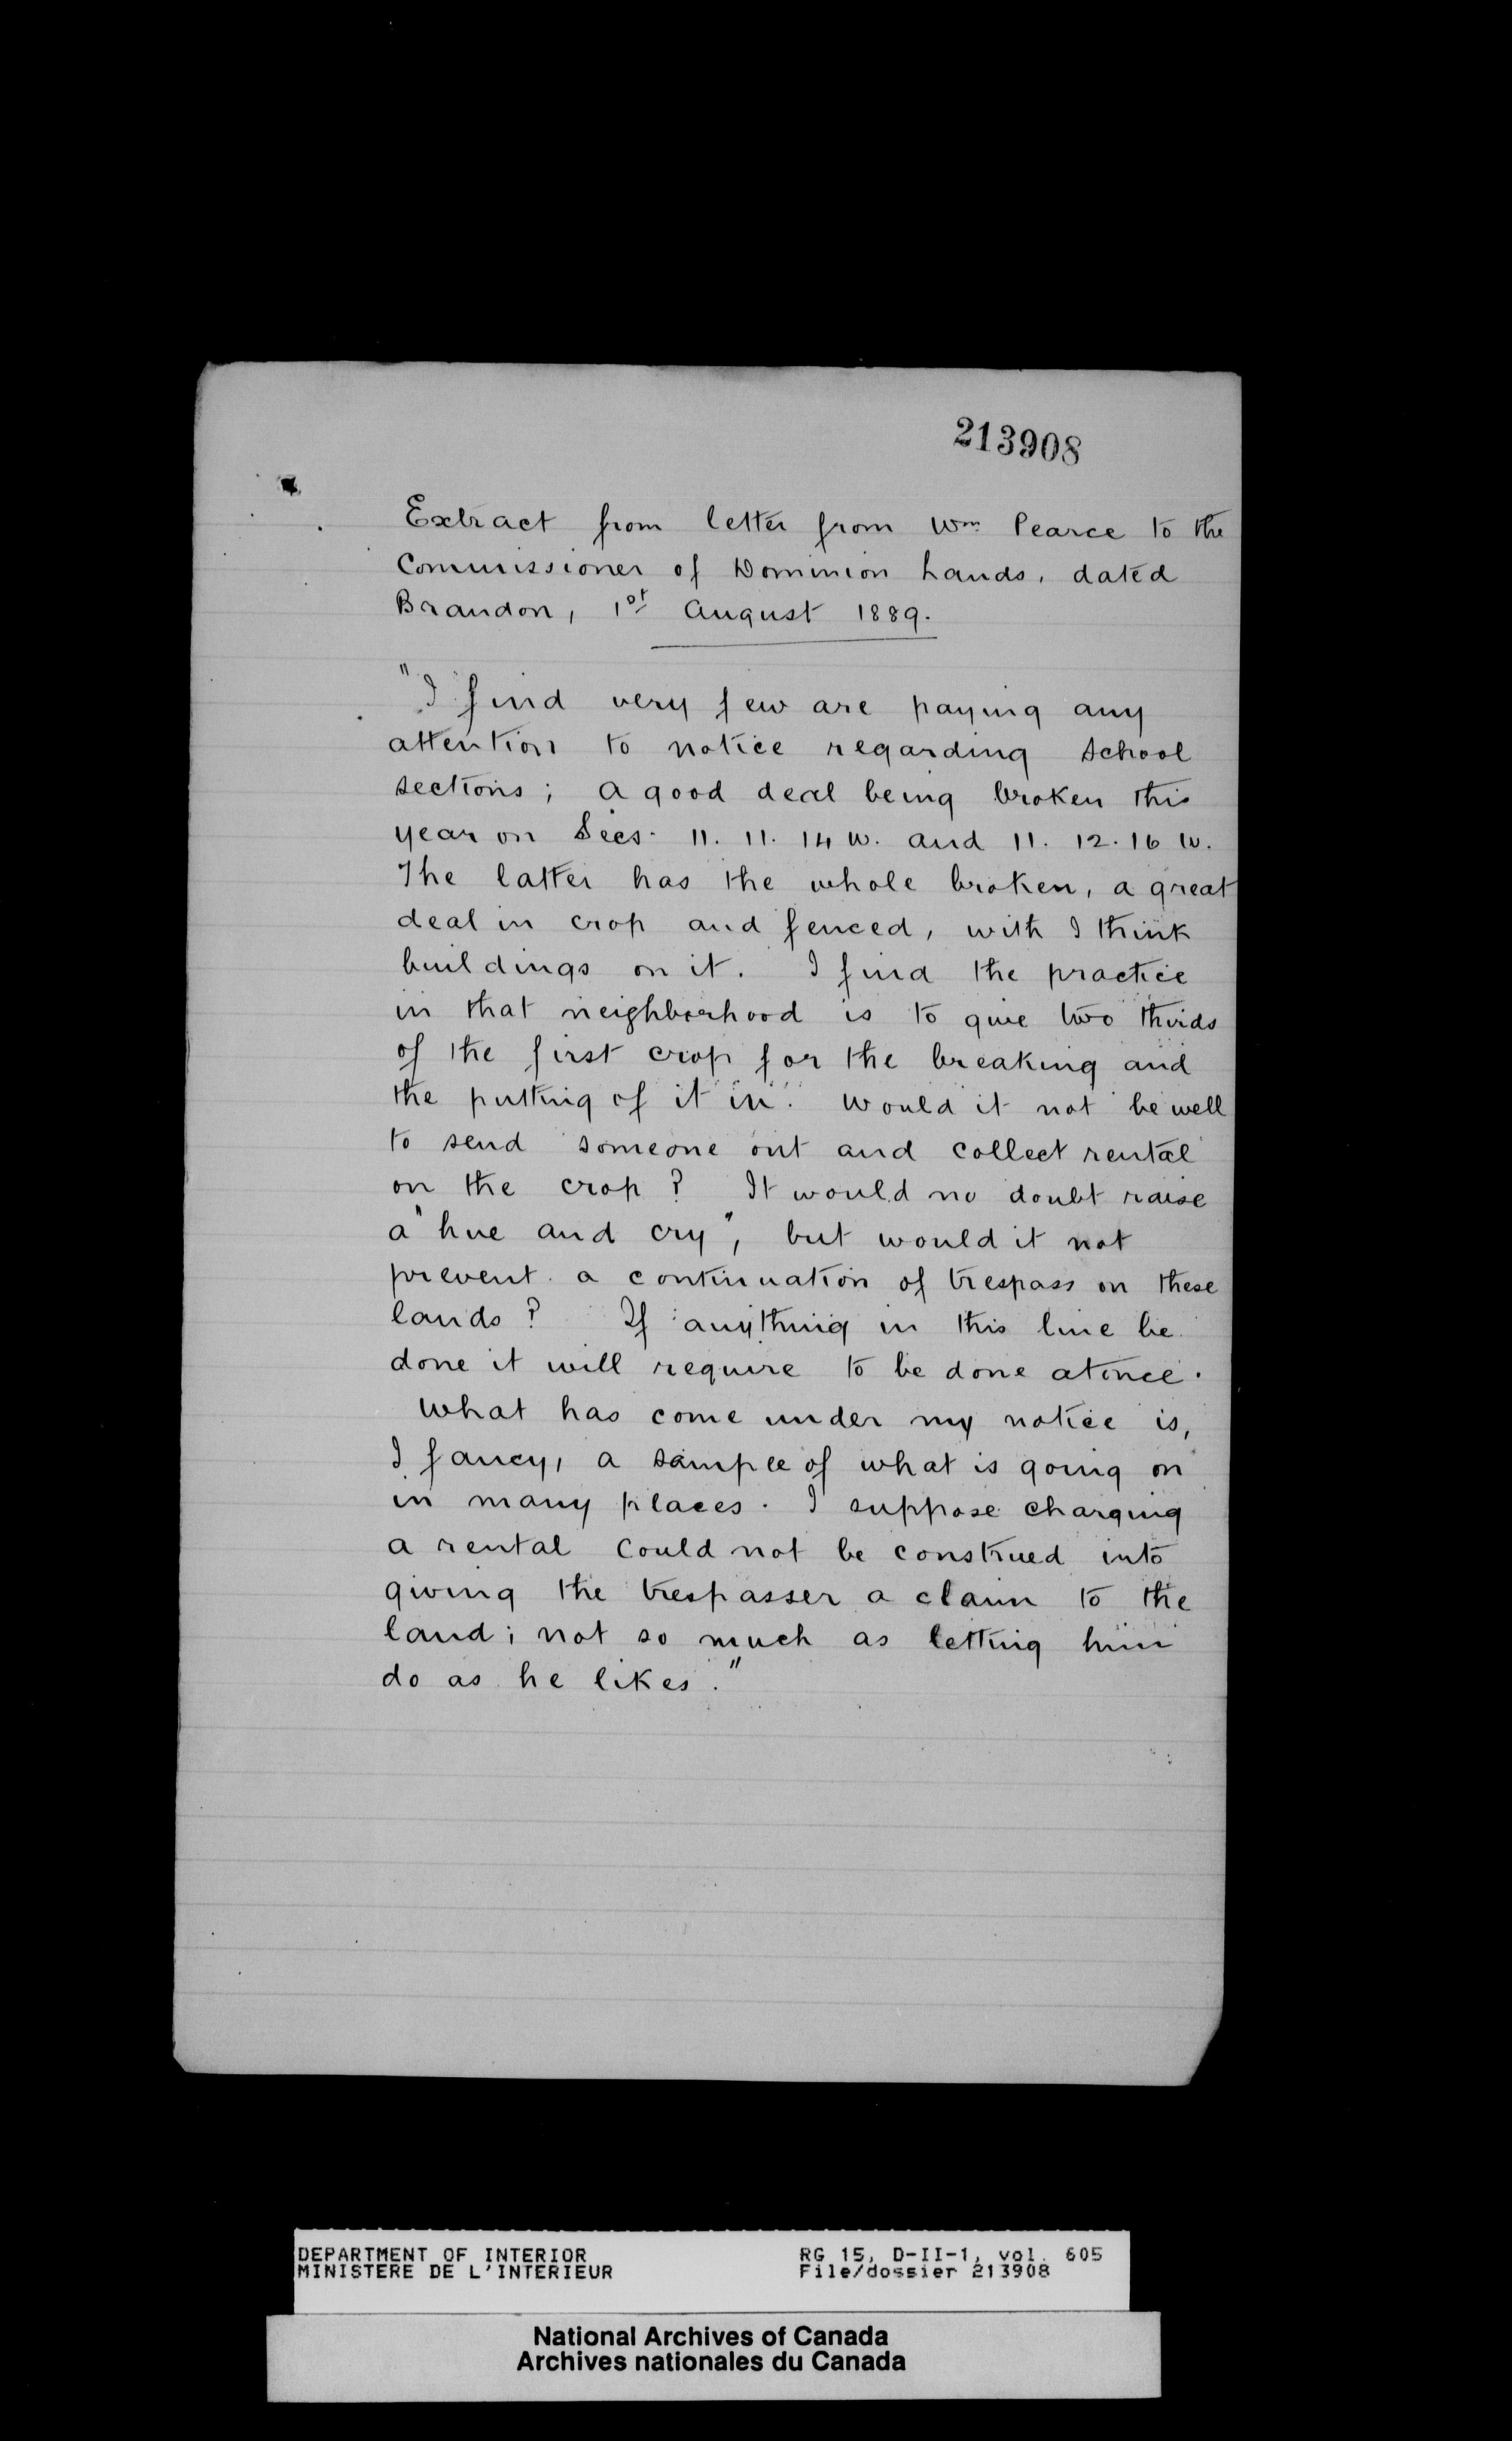 213908
Extract from letter from Wm. Pearce to the
Commissioner of Dominion Lands, dated
Brandon, 1st August 1889.
"I find very few are paying any
attention to notice regarding school
sections; a good deal being broken this
year on Secs. 11. 11. 14 W. and 11. 12. 16 W.
The latter has the whole broken, a great
deal in crop and fenced, with I think
buildings on it. I find the practice
in that neighborhood is to give two thirds
of the first crop for the breaking and
the putting of it in. Would it not be well
to send someone out and collect rental
on the crop? It would no doubt raise
a "hue and cry", but would it not
prevent a continuation of trespass on these
lands? If anything in this line be
done it will require to be done at once.
What has come under my notice is,
I fancy, a sample of what is going on
in many places. I suppose charging
a rental could not be construed into
giving the trespasser a claim to the
land; not so much as letting him
do as he likes."
DEPARTMENT OF INTERIOR RG 15, D-II-1, vol. 605
MINISTERE DE L'INTERIEUR File/dossier 213908
National Archives of Canada
Archives nationales du Canada